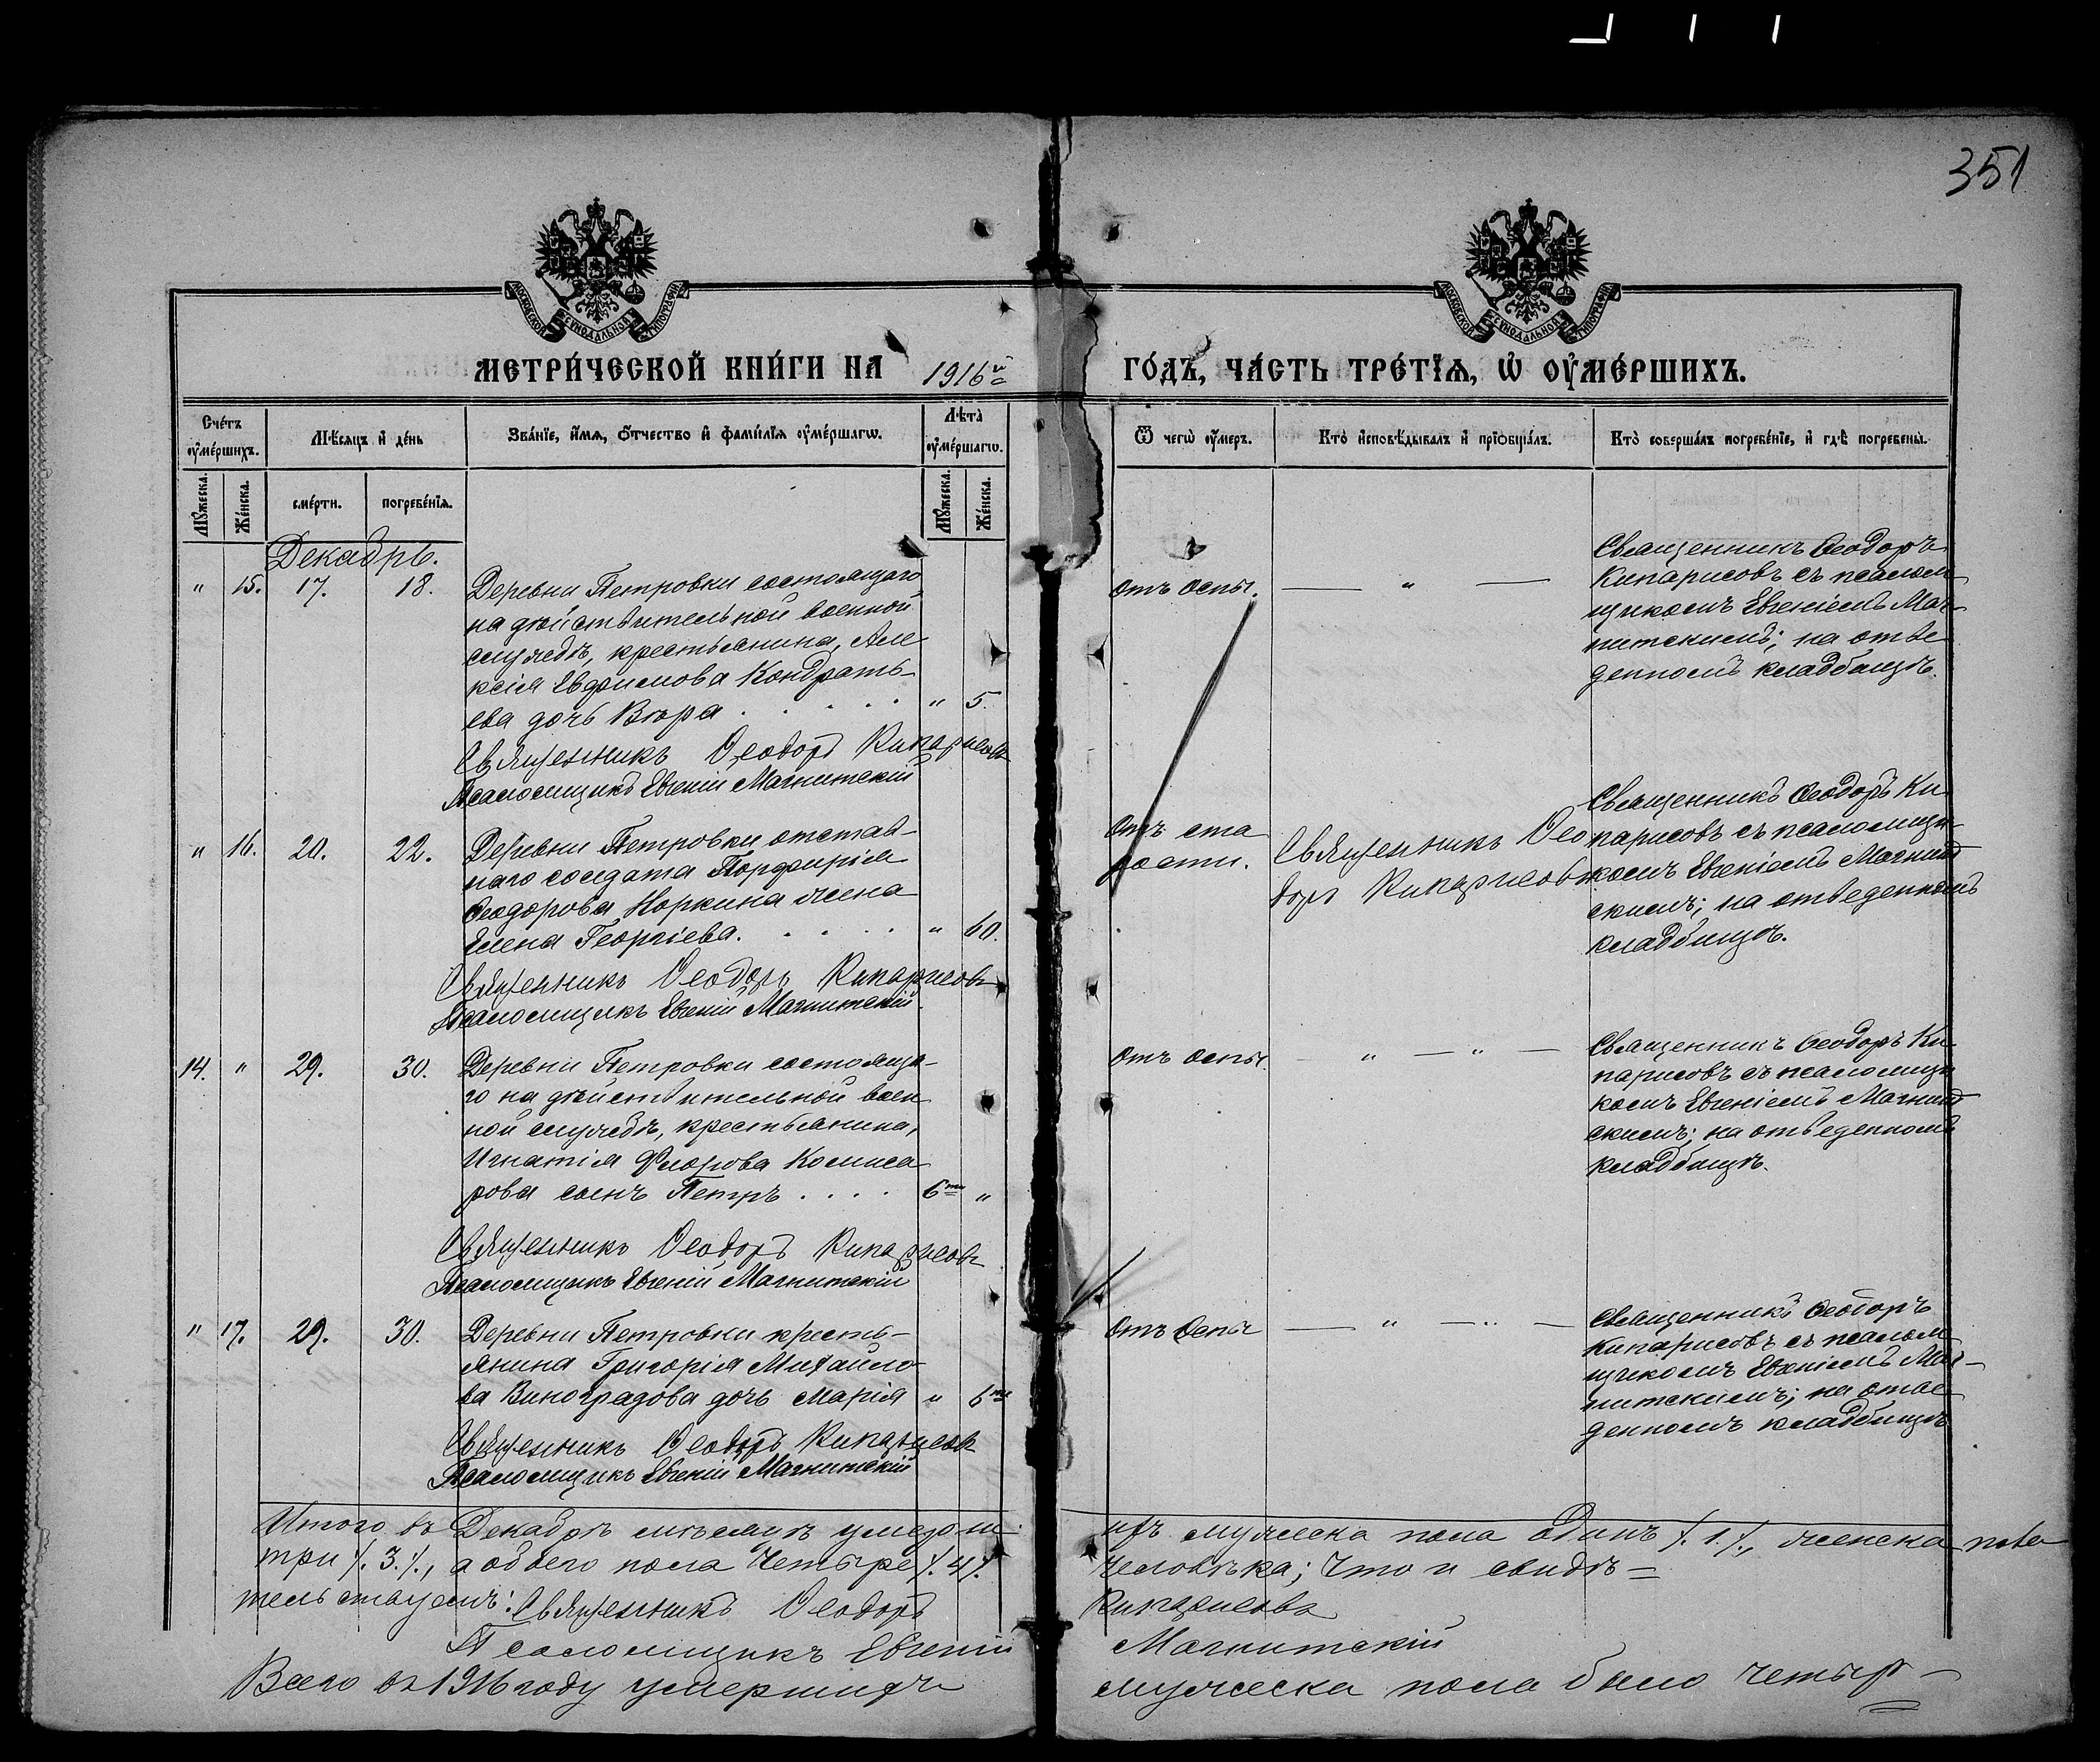 351
МОСКОВСКОЙ СѴНОДАЛЬНОЙ ТИПОГРАФІИ
МОСКОВСКОЙ СѴНОДАЛЬНОЙ ТИПОГРАФІИ
МЕТРИ́ЧЕСКОЙ КНИ́ГИ НА 1916й ГО́ДЪ, ЧА́СТЬ ТРЕ́ТЇѦ, Ѡ ОУ҆МЕ́РШИХЪ.
Сче́тъ оу҆ме́ршихъ.
Мѣ́сяцъ и҆ де́нь
Зва́нїе, и҆́мѧ, ѻ҆́тчество и҆ фами́лїѧ оу҆ме́ршагѡ.
Лѣ́та оу҆ме́ршагѡ.
Ѿ чегѡ̀ оу҆́меръ.
Кто̀ и҆сповѣ́дывалъ и҆ прїѡбща́лъ.
Кто̀ соверша́лъ погребе́нїе, и҆ гдѣ̀ погребены̀.
Мꙋ́жеска.
Же́нска.
сме́рти.
погребе́нїѧ.
Мꙋ́жеска.
Же́нска.
Декабрь.
" 15. 17. 18.
Деревни Петровки состоящаго
на дѣйствительной военной
службѣ, крестьянина, Але
ксія Евфимова Кондрать-
ева дочь Вѣра . . . . . " 5.
Священникъ Ѳеодоръ Кипарисовъ
Псаломщикъ Евгеній Магнитскій
отъ оспы. — " —
Священникъ Ѳеодоръ
Кипарисовъ съ псалом
щикомъ Евгеніемъ Маг-
нитскимъ; на отве
денномъ кладбищѣ.
" 16. 20. 22.
Деревни Петровки отстав-
наго солдата Порфирія
Ѳеодорова Норкина жена
Елена Георгіева. . . . . " 60.
Священникъ Ѳеодоръ Кипарисовъ
Псаломщикъ Евгеній Магнитскій.
Отъ ста
рости.
Священникъ Ѳео
доръ Кипарисовъ
Священникъ Ѳеодоръ Ки
парисовъ съ псаломщи-
комъ Евгеніемъ Магнит
скимъ; на отведенномъ
кладбищѣ.
14. " 29. 30.
Деревни Петровки состояща-
го на дѣйствительной воен
ной службѣ, крестьянина,
Игнатія Флорова Комиса
рова сынъ Петръ . . . . 6ти "
Священникъ Ѳеодоръ Кипарисовъ
Псаломщикъ Евгеній Магнитскій
отъ оспы. — " — " —
Священникъ Ѳеодоръ Ки
парисовъ съ псаломщи
комъ Евгеніемъ Магнит
скимъ; на отведенномъ
кладбищѣ.
" 17. 29. 30.
Деревни Петровки кресть-
янина Григорія Михайло-
ва Виноградова дочь Марія " 6ти
Священникъ Ѳеодоръ Кипарисовъ
Псаломщикъ Евгеній Магнитскій
Отъ Оспы — " — " —
Священникъ Ѳеодоръ
Кипарисовъ съ псалом
щикомъ Евгеніемъ Маг-
нитскимъ; на отве
денномъ кладбищѣ
Итого въ Декабрѣ мѣсяцѣ умерши- ихъ мужеска пола Одинъ /. 1./., женска пола
три /. 3./., а обоего пола Четыре /. 4/. Человѣка; Что и свидѣ=
тельствуемъ: Священникъ Ѳеодоръ Кипарисовъ
Псаломщикъ Евгеній Магнитскій
Всего въ 1916 году умершихъ мужеска пола было четыр-